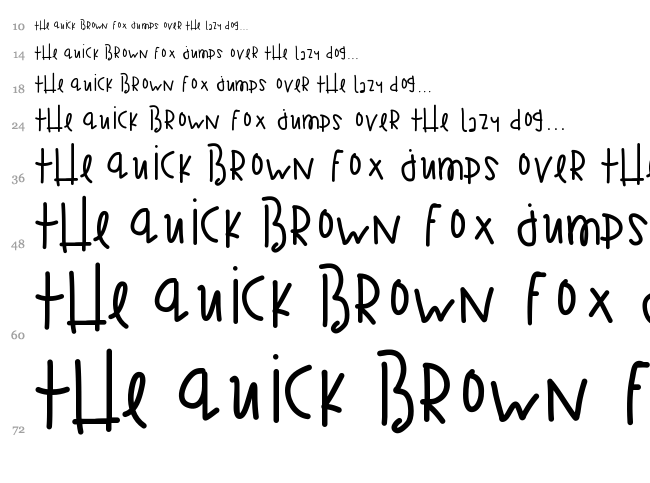 10 tHe quick BROwN fox dumps oveR tHe lazy dog...
14 tHe quick BROwN fox dumps oveR tHe lazy dog...
18 tHe quick BROwN fox dumps oveR tHe lazy dog...
24 tHe quick BROwN fox dumps oveR tHe lazy dog...
36 tHe quick BROwN fox dumps oveR tHe
48 tHe quick BROwN fox dumps
60 tHe quick BROwN fox
72 tHe quick BROwN f